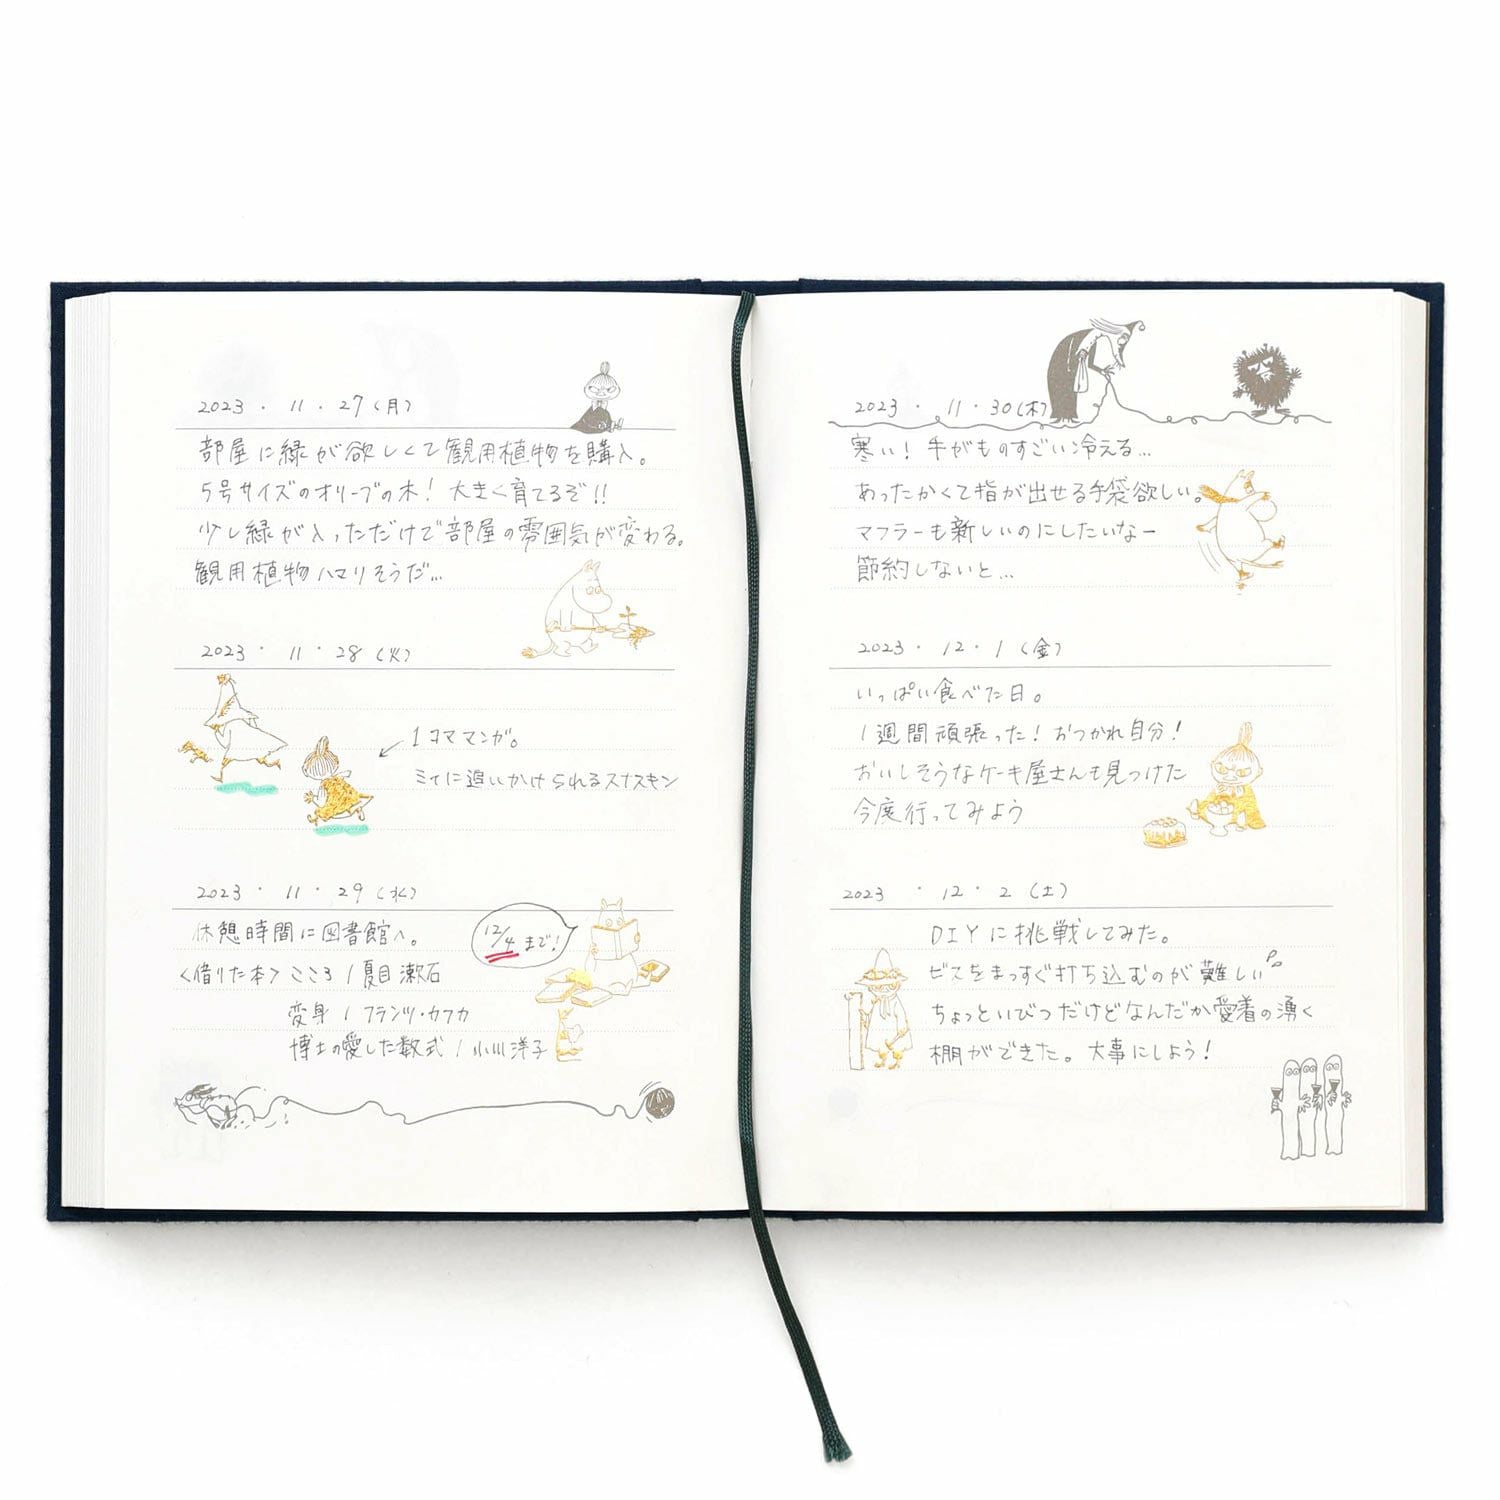 2023 ・ 11 ・ 27 (月)
部屋に緑が欲しくて観用植物を購入。
5号サイズのオリーブの木！大きく育てるぞ!!
少し緑が入っただけで部屋の雰囲気が変わる。
観用植物ハマりそうだ…
2023 ・ 11 ・ 28 (火)
1コママンガ。
ミイに追いかけられるスナスキン
2023 ・ 11 ・ 29 (水)
休憩時間に図書館へ。
12/4 まで！
<借りた本> こころ / 夏目漱石
変身 / フランツ・カフカ
博士の愛した数式 / 小川洋子
2023 ・ 11 ・ 30 (木)
寒い！手がものすごい冷える…
あったかくて指が出せる手袋欲しい。
マフラーも新しいのにしたいなー
節約しないと…
2023 ・ 12 ・ 1 (金)
いっぱい食べた日。
1週間頑張った！おつかれ自分！
おいしそうなケーキ屋さんも見つけた
今度行ってみよう
2023 ・ 12 ・ 2 (土)
DIYに挑戦してみた。
ビスをまっすぐ打ち込むのが難しい
ちょっといびつだけどなんだか愛着の湧く
棚ができた。大事にしよう！